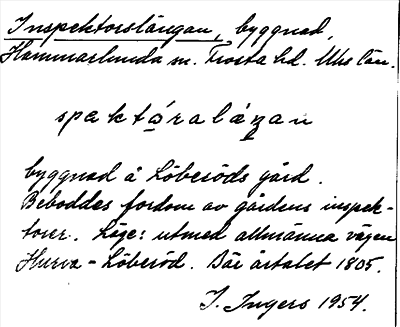 Inspektorslängan, byggnad,
Hammarlunda sn. Frosta hd. Mhs län.
spaktǫ́raláŋan
byggnad å Löberöds gård.
Beboddes fordom av gårdens inspek-
torer. Läge: utmed allmänna vägen
Hurva - Löberöd. Bär årtalet 1805.
I. Ingers 1954.